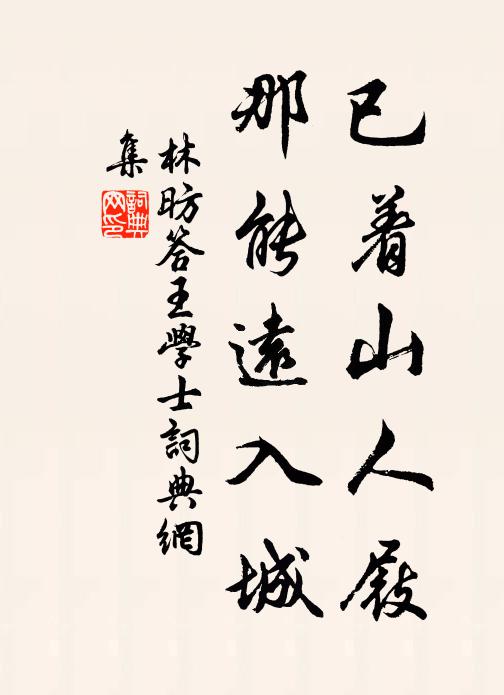 已着山人屐
那能遠入城
林昉答王學士詞典網
集
詞典
网印